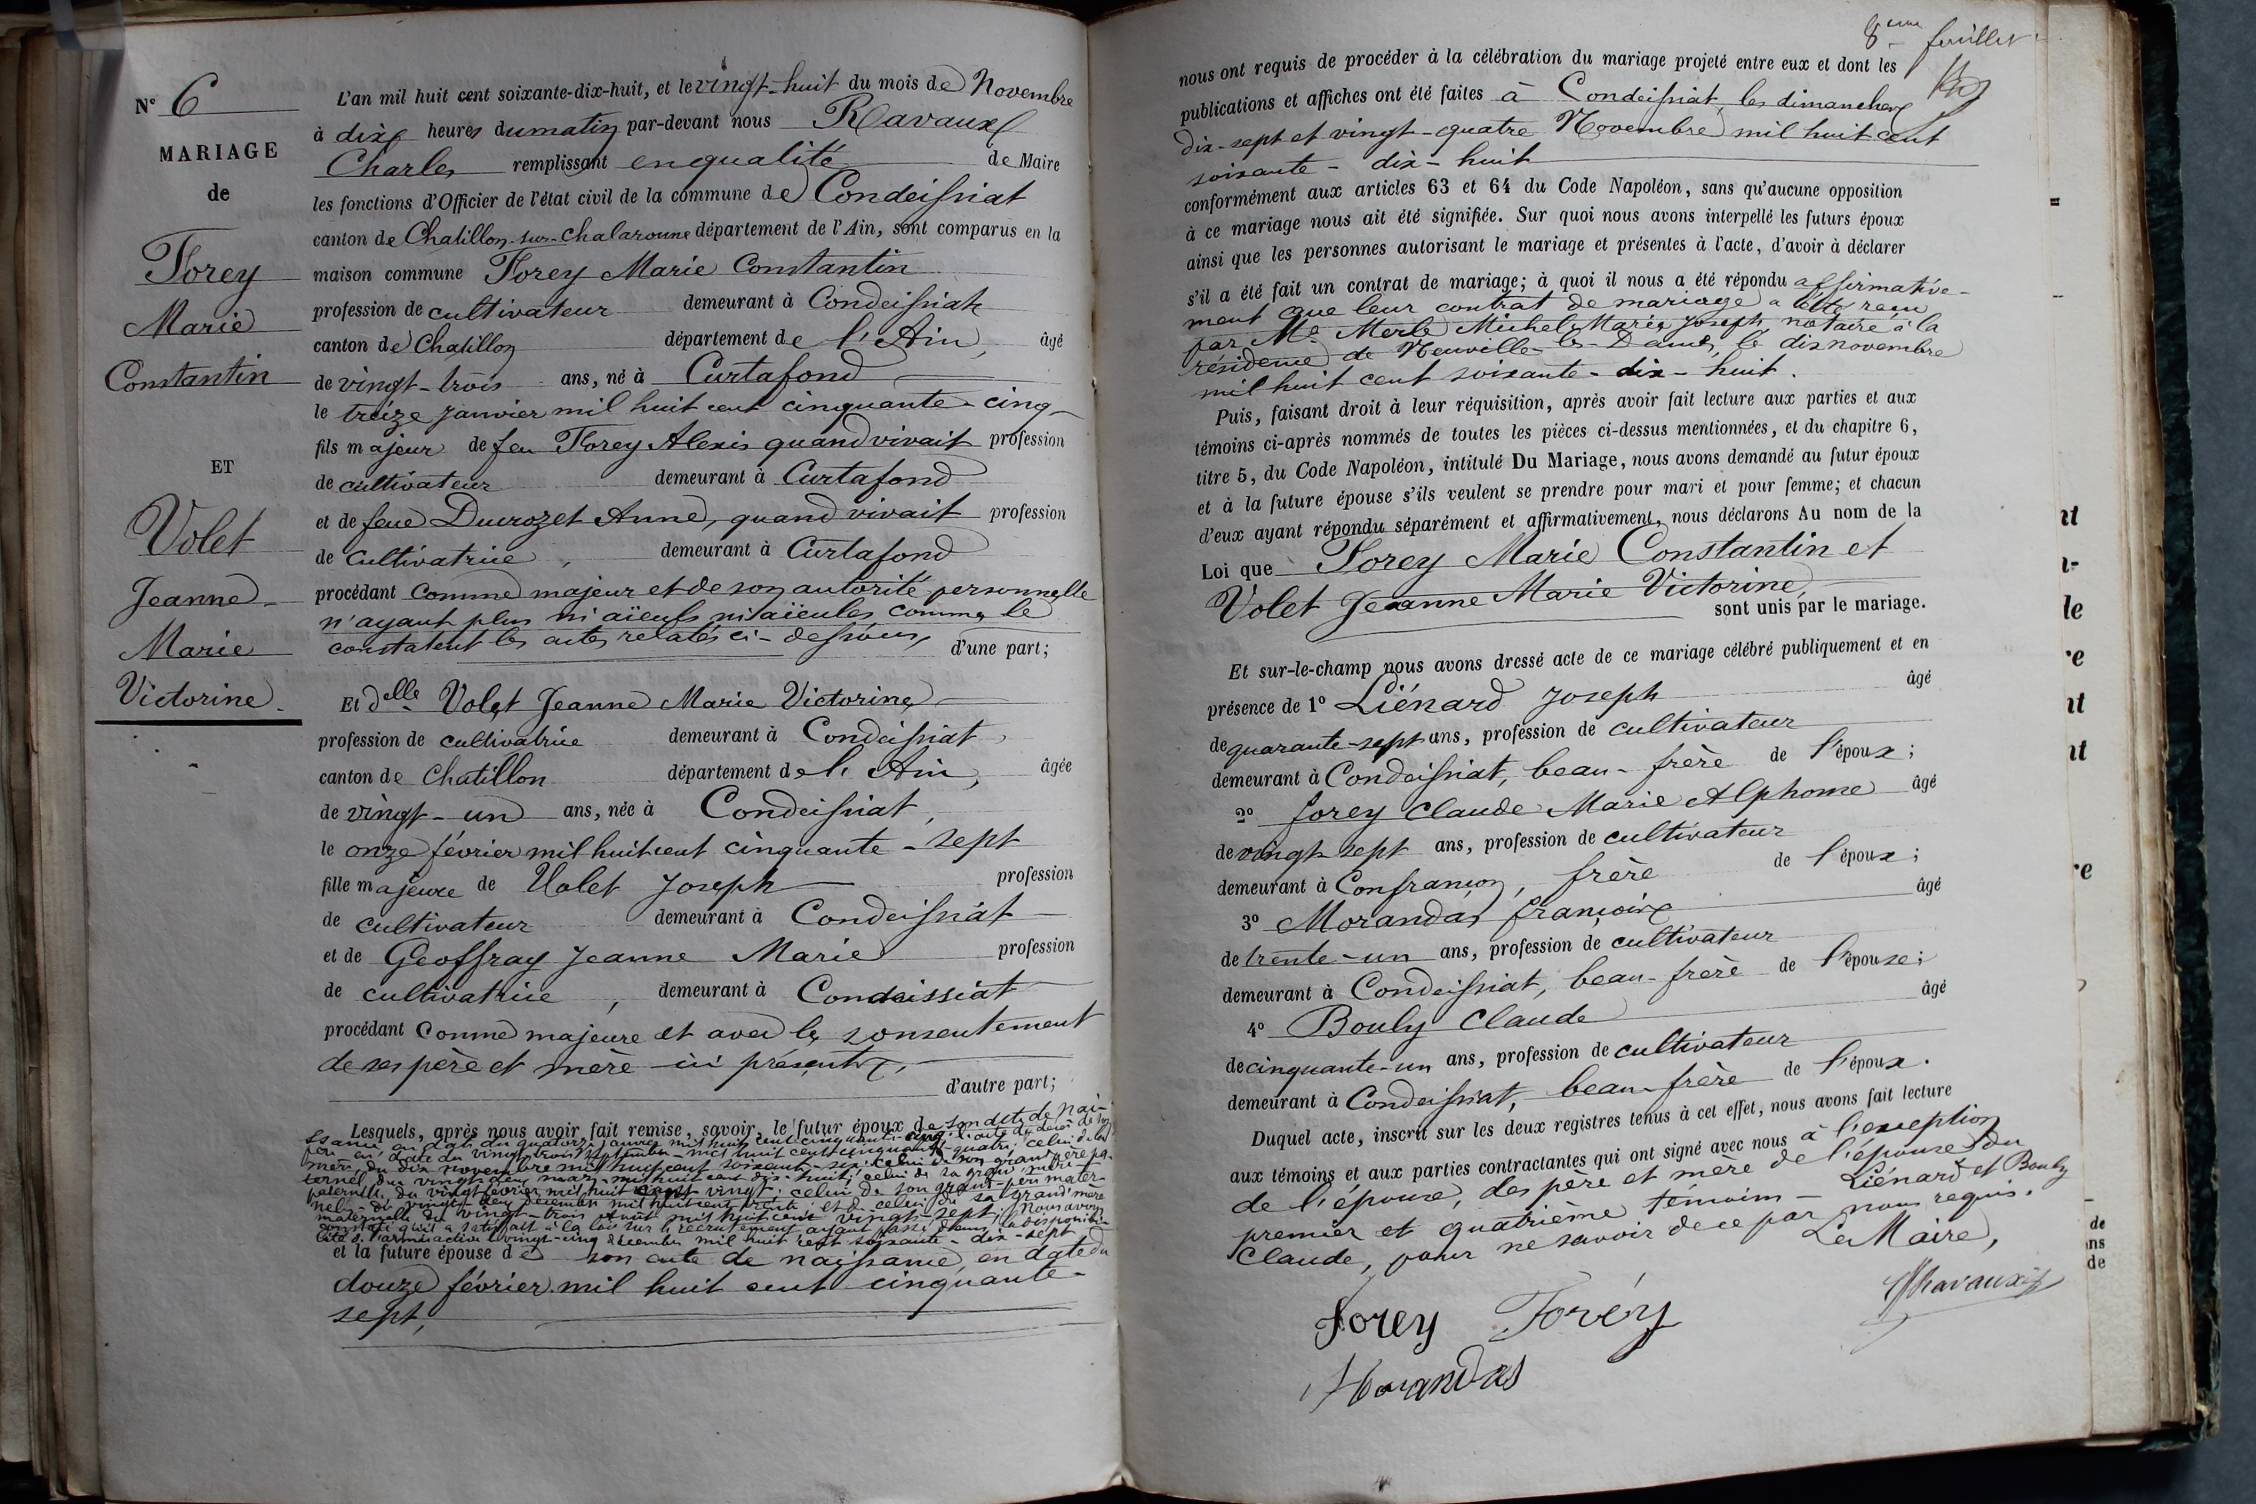 N° 6
MARIAGE
de
Forey
Marie
Constantin
ET
Volet
Jeanne
Marie
Victorine.
L'an mil huit cent soixante-dix-huit, et le vingt-huit du mois de Novembre
à dix heures du matin par-devant nous Ravaux
Charles remplissant en qualité de Maire
les fonctions d'Officier de l'état civil de la commune de Condeissiat
canton de Chatillon-sur-Chalaronne département de l'Ain, sont comparus en la
maison commune Forey Marie Constantin
profession de cultivateur demeurant à Condeissiat
canton de Chatillon département de l'Ain, âgé
de vingt-trois ans, né à Curtafond
le treize janvier mil huit cent cinquante-cinq
fils majeur de feu Forey Alexis quand vivait profession
de cultivateur demeurant à Curtafond
et de feue Ducrozet Anne, quand vivait profession
de cultivatrice, demeurant à Curtafond
procédant comme majeur et de son autorité personnelle
n'ayant plus ni aïeuls ni aïeules comme le
constatent les actes relatés ci-dessous, d'une part;
Et delle Volet Jeanne Marie Victorine
profession de cultivatrice demeurant à Condeissiat,
canton de Chatillon département de l'Ain, âgée
de vingt-un ans, née à Condeissiat,
le onze février mil huit cent cinquante-sept
fille majeure de Volet Joseph profession
de cultivateur demeurant à Condeissiat
et de Geoffray Jeanne Marie profession
de cultivatrice, demeurant à Condeissiat
procédant comme majeure et avec le consentement
de ses père et mère ici présents, d'autre part;
Lesquels, après nous avoir fait remise, savoir, le futur époux de son acte de nai-
ssance en date du quatorze janvier mil huit cent cinquante-cinq; l'acte de décès de son
père en date du vingt-trois septembre mil huit cent cinquante-quatre; celui de sa
mère, du dix novembre mil huit cent soixante-six; celui de son grand-père pa-
ternel du vingt-deux mars mil huit cent dix-huit; celui de sa grand'mère
paternelle du vingt février mil huit cent vingt; celui de son grand-père mater-
nel du vingt-deux décembre mil huit cent trente; et de celui de sa grand'mère
maternelle du vingt-trois mil huit cent vingt-sept. Nous avons
constaté qu'il a satisfait à la loi sur le recrutement ayant passé dans la disponibi-
lité de l'armée active le vingt-cinq décembre mil huit cent soixante-dix-sept
et la future épouse de son acte de naissance, en date du
douze février mil huit cent cinquante-
sept,
8eme feuillet
nous ont requis de procéder à la célébration du mariage projeté entre eux et dont les
publications et affiches ont été faites à Condeissiat, les dimanches
dix-sept et vingt-quatre Novembre mil huit cent
soixante-dix-huit
conformément aux articles 63 et 64 du Code Napoléon, sans qu'aucune opposition
à ce mariage nous ait été signifiée. Sur quoi nous avons interpellé les futurs époux
ainsi que les personnes autorisant le mariage et présentes à l'acte, d'avoir à déclarer
s'il a été fait un contrat de mariage; à quoi il nous a été répondu affirmative-
ment que leur contrat de mariage a été reçu
par Me Merle Michel Marie Joseph, notaire à la
résidence de Neuville-les-Dames, le dix novembre
mil huit cent soixante-dix-huit.
Puis, faisant droit à leur réquisition, après avoir fait lecture aux parties et aux
témoins ci-après nommés de toutes les pièces ci-dessus mentionnées, et du chapitre 6,
titre 5, du Code Napoléon, intitulé Du Mariage, nous avons demandé au futur époux
et à la future épouse s'ils veulent se prendre pour mari et pour femme; et chacun
d'eux ayant répondu séparément et affirmativement, nous déclarons Au nom de la
Loi que Forey Marie Constantin et
Volet Jeanne Marie Victorine,
sont unis par le mariage.
Et sur-le-champ nous avons dressé acte de ce mariage célébré publiquement et en
présence de 1° Liénard Joseph âgé
de quarante-sept ans, profession de cultivateur
demeurant à Condeissiat, beau-frère de l'époux;
2° Forey Claude Marie Alphonse âgé
de vingt-sept ans, profession de cultivateur
demeurant à Confrançon, frère de l'époux;
3° Morandas françois âgé
de trente-un ans, profession de cultivateur
demeurant à Condeissiat, beau-frère de l'épouse;
4° Bouly Claude âgé
de cinquante-un ans, profession de cultivateur
demeurant à Condeissiat, beau-frère de l'époux.
Duquel acte, inscrit sur les deux registres tenus à cet effet, nous avons fait lecture
aux témoins et aux parties contractantes qui ont signé avec nous à l'exception
de l'épouse, des père et mère de l'épouse, du
premier et quatrième témoins - Liénard et Bouly
Claude, pour ne savoir de ce par nous requis.
Le Maire,
Forey Forey Ravaux
Morandas